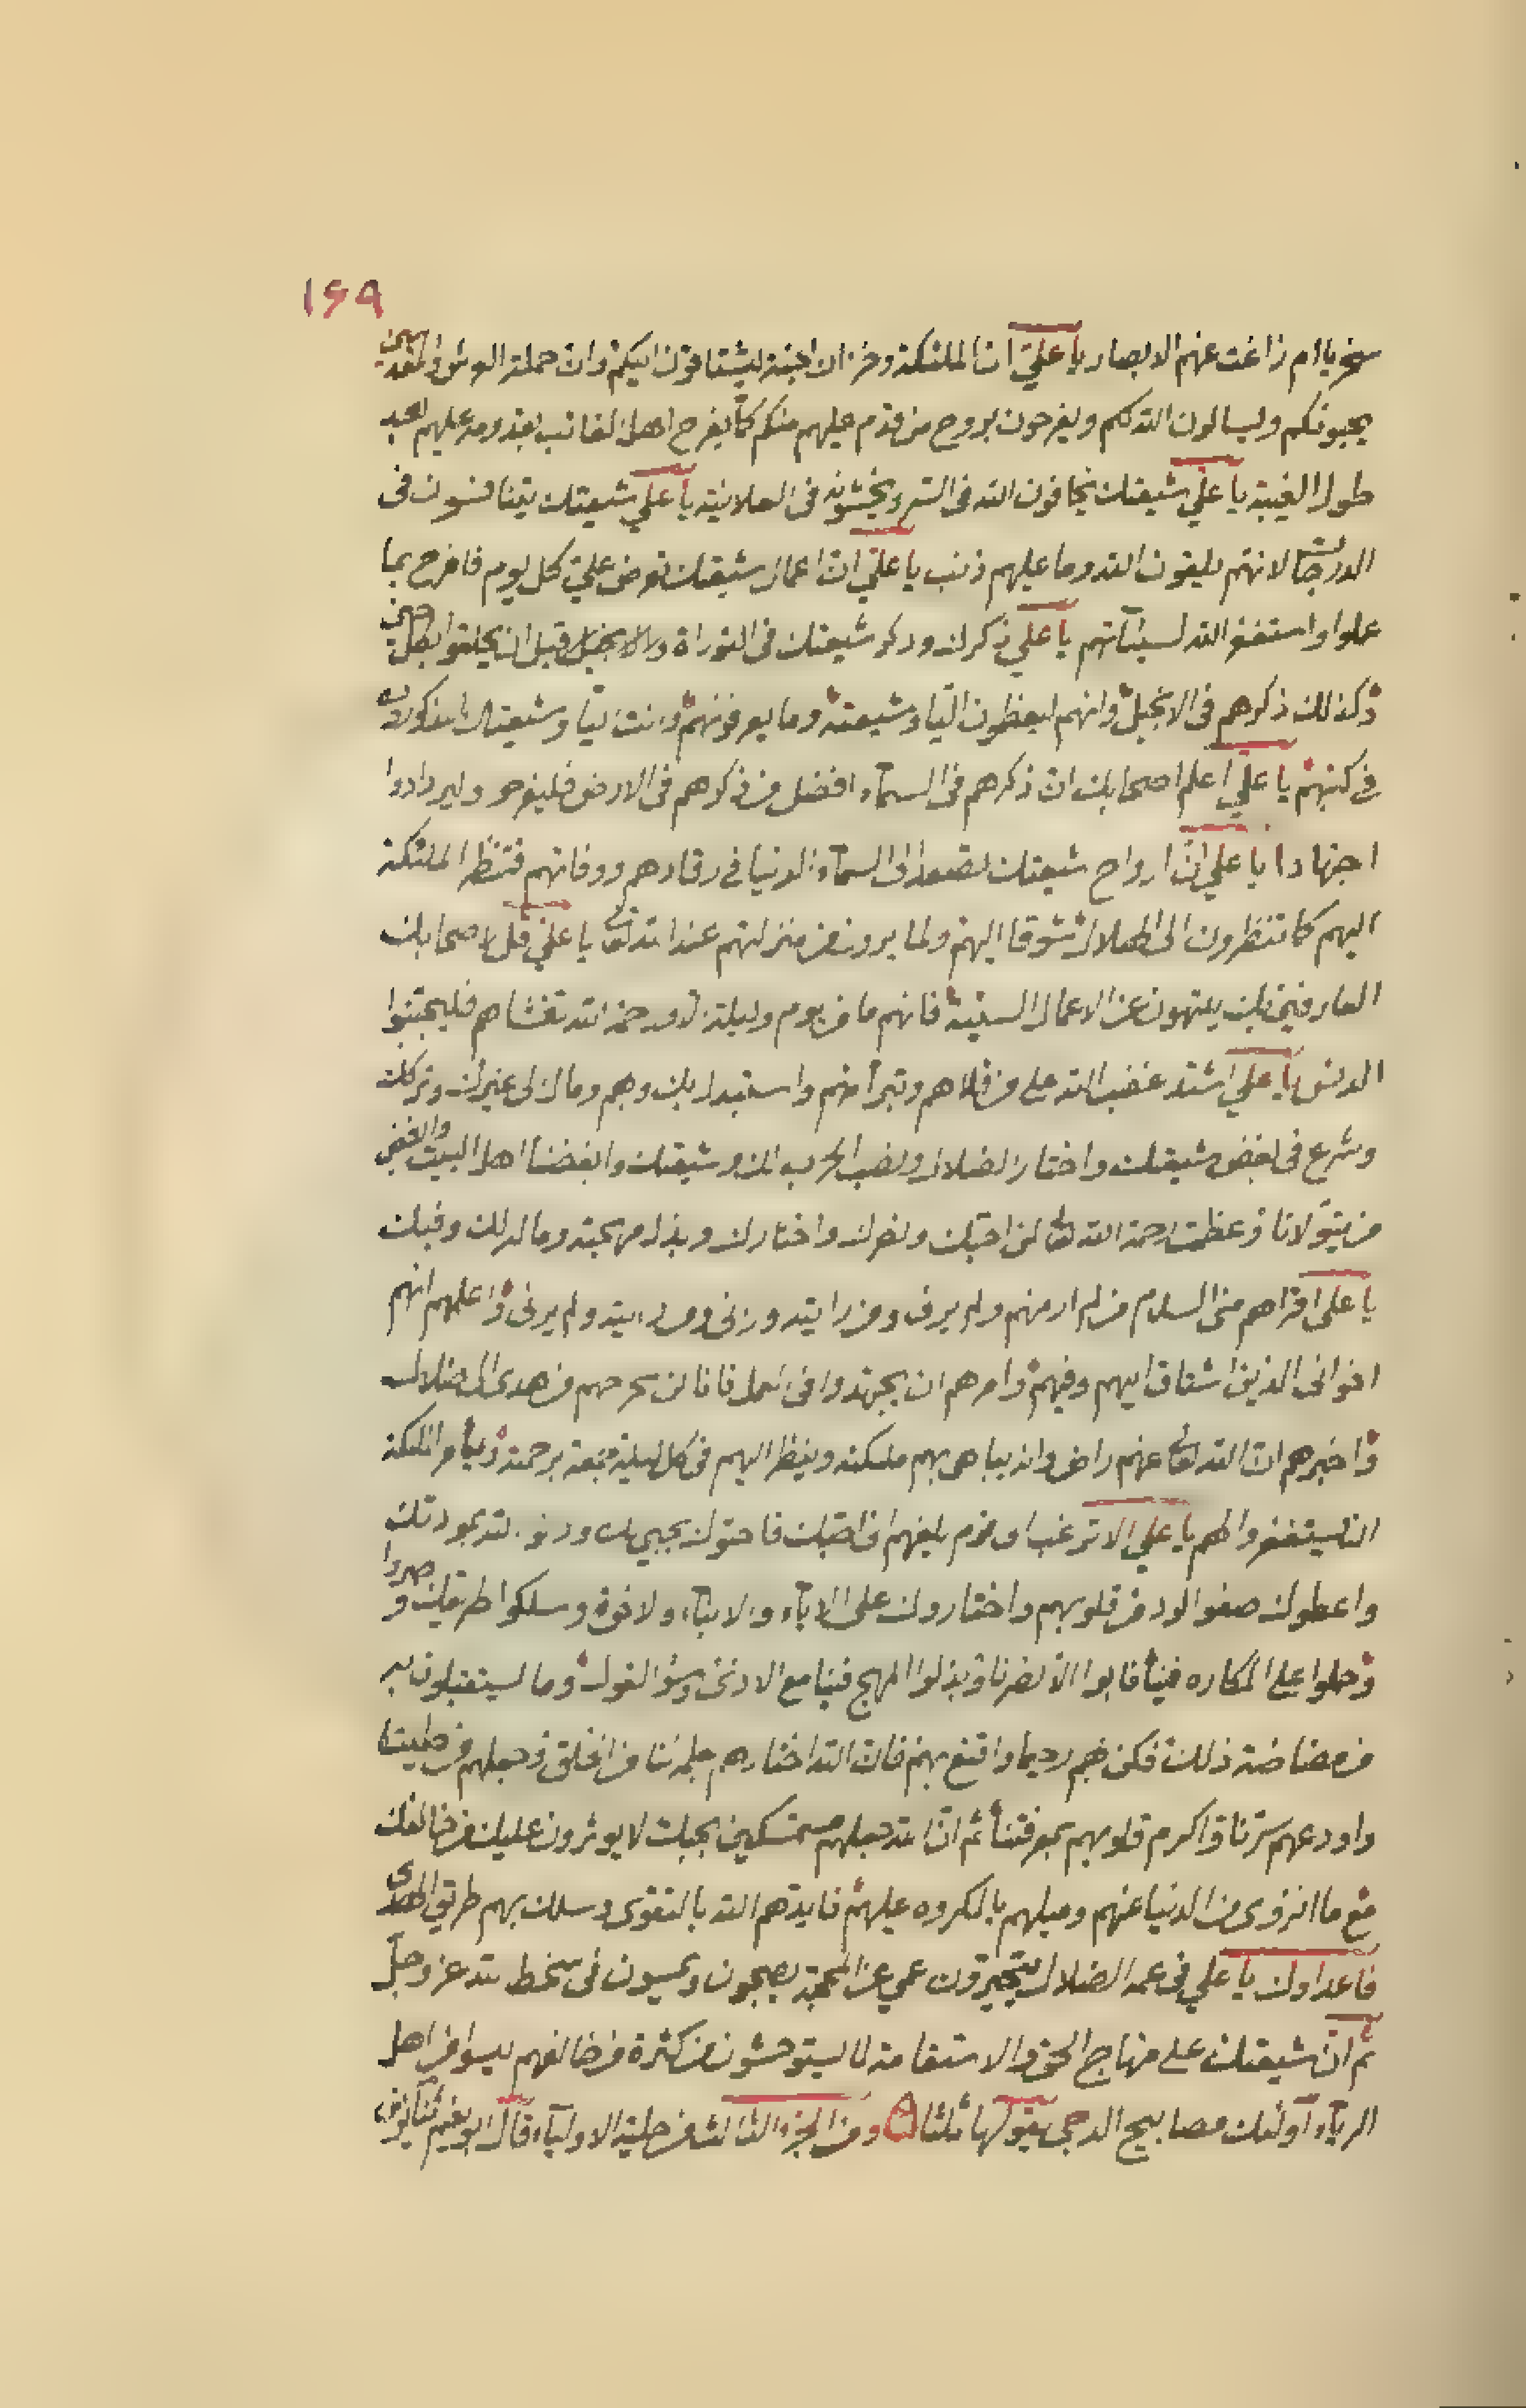 ١٦٩
سخريا ام زاغت عنهم الابصار يا علي ان الملئكة وخزان الجنة ليشتاقون اليكم وان حملة العرش والمقربين
يحبونكم وليسالون الله لكم ويفرحون بروح من قدم عليهم منكم كما يفرح اهل الغائب بقدومه عليهم بعد
طول الغيبة يا علي شيعتك يخافون الله فى السر ويخشونه فى العلانية يا علي شيعتك يتنافسون فى
الدرجات لانهم يلقون الله وما عليهم ذنب يا علي ان اعمال شيعتك تعرض علي كل يوم فافرح بما
عملوا واستغفر الله لسيئآتهم يا علي ذكرك وذكر شيعتك فى التوراة والانجيل قبل ان يخلقوا بكل خير
وكذلك ذكرهم فى الانجيل وانهم ليعظمون اليّا وشيعته وما يعرفونهم وانت اليّا وشيعتك المذكورون
فى كتبهم يا علي اعلم اصحابك ان ذكرهم فى السمآء افضل من ذكرهم فى الارض فليفرحو وليزدادوا
اجتهادا يا علي ان ارواح شيعتك لتصعد الى السمآء الدنيا فى رقادهم ووفاتهم فتنظر الملئكة
اليهم كما تنظرون الى الهلال شوقا اليهم ولما يرون من منزلتهم عند الله تعالى يا علي قل لاصحابك
العارفين بك ينتهون عن الاعمال السيئة فانهم ما من يوم وليلة الا ورحمة الله تغشاهم فليجتنبوا
الدنس يا علي اشتد غضب الله على من قلاهم وتبرأ منهم واستبدل بك وبهم ومال الى غيرك وتركك
وشرع فى بغض شيعتك واختار الضلال ونصب الحرب لك وشيعتك وابغضنا اهل البيت وابغض
من يتولانا وعظمت رحمة الله تعالى لمن احبك ونصرك واختارك وبذل مهجته وماله لك وقبلت
يا علي اقراهم منى السلام من لم ار منهم ولم يرنى ومن رايته ورانى ومن رايته ولم يرنى واعلمهم انهم
اخوانى الذين اشتاق اليهم وفيهم وامرهم ان يجتهدوا فى العمل فانا لن نخرجهم من هدى الى ضلال
واخبرهم ان الله تعالى عنهم راض وانه يباهى بهم ملئكته وينظر اليهم فى كل ليلة جمعة برحمته ويأمر الملئكة
ان يستغفروا لهم يا علي الا ترغب فى قوم بلغهم انى احبك فاحبوك بحبي لك ودنوا لله بمودتك
واعطوك صفو الود من قلوبهم واختاروك على الابآء والابنآء والاخوة وسلكوا طريقك وصبروا
وحملوا على المكاره فينا فابوا الا نصرنا وبذلوا المهج فينا مع الاذى وسؤ القول وما ليستقبلون به
من مضاضة ذلك فكن بهم رحيما واقنع بهم فان الله اختارهم بعلمه لنا من الخلق وجعلهم من طينتنا
واودعهم سرنا واكرم قلوبهم بمعرفتنا ثم ان الله جعلهم متمسكين بحبك لا يوثرون عليك من خالفك
مع ما انزوى من الدنيا عنهم وميلهم بالمكروه عليهم فايدهم الله بالتقوى وسلك بهم طريق الهدى
فاعداوك يا علي فى عمه الضلال يتحيرون عمي عن المحجة يصبحون ويمسون فى سخط لله عز وجل
ثم ان شيعتك على منهاج الحق والاستقامة لا ليستوحشون من كثرة من خالفهم ليسوا من اهل
الريآء اولئك مصابيح الدجى يقولها ثلثا ومن الجزء الثالث من حلية الاوليآء قال ابو نعيم ثنا